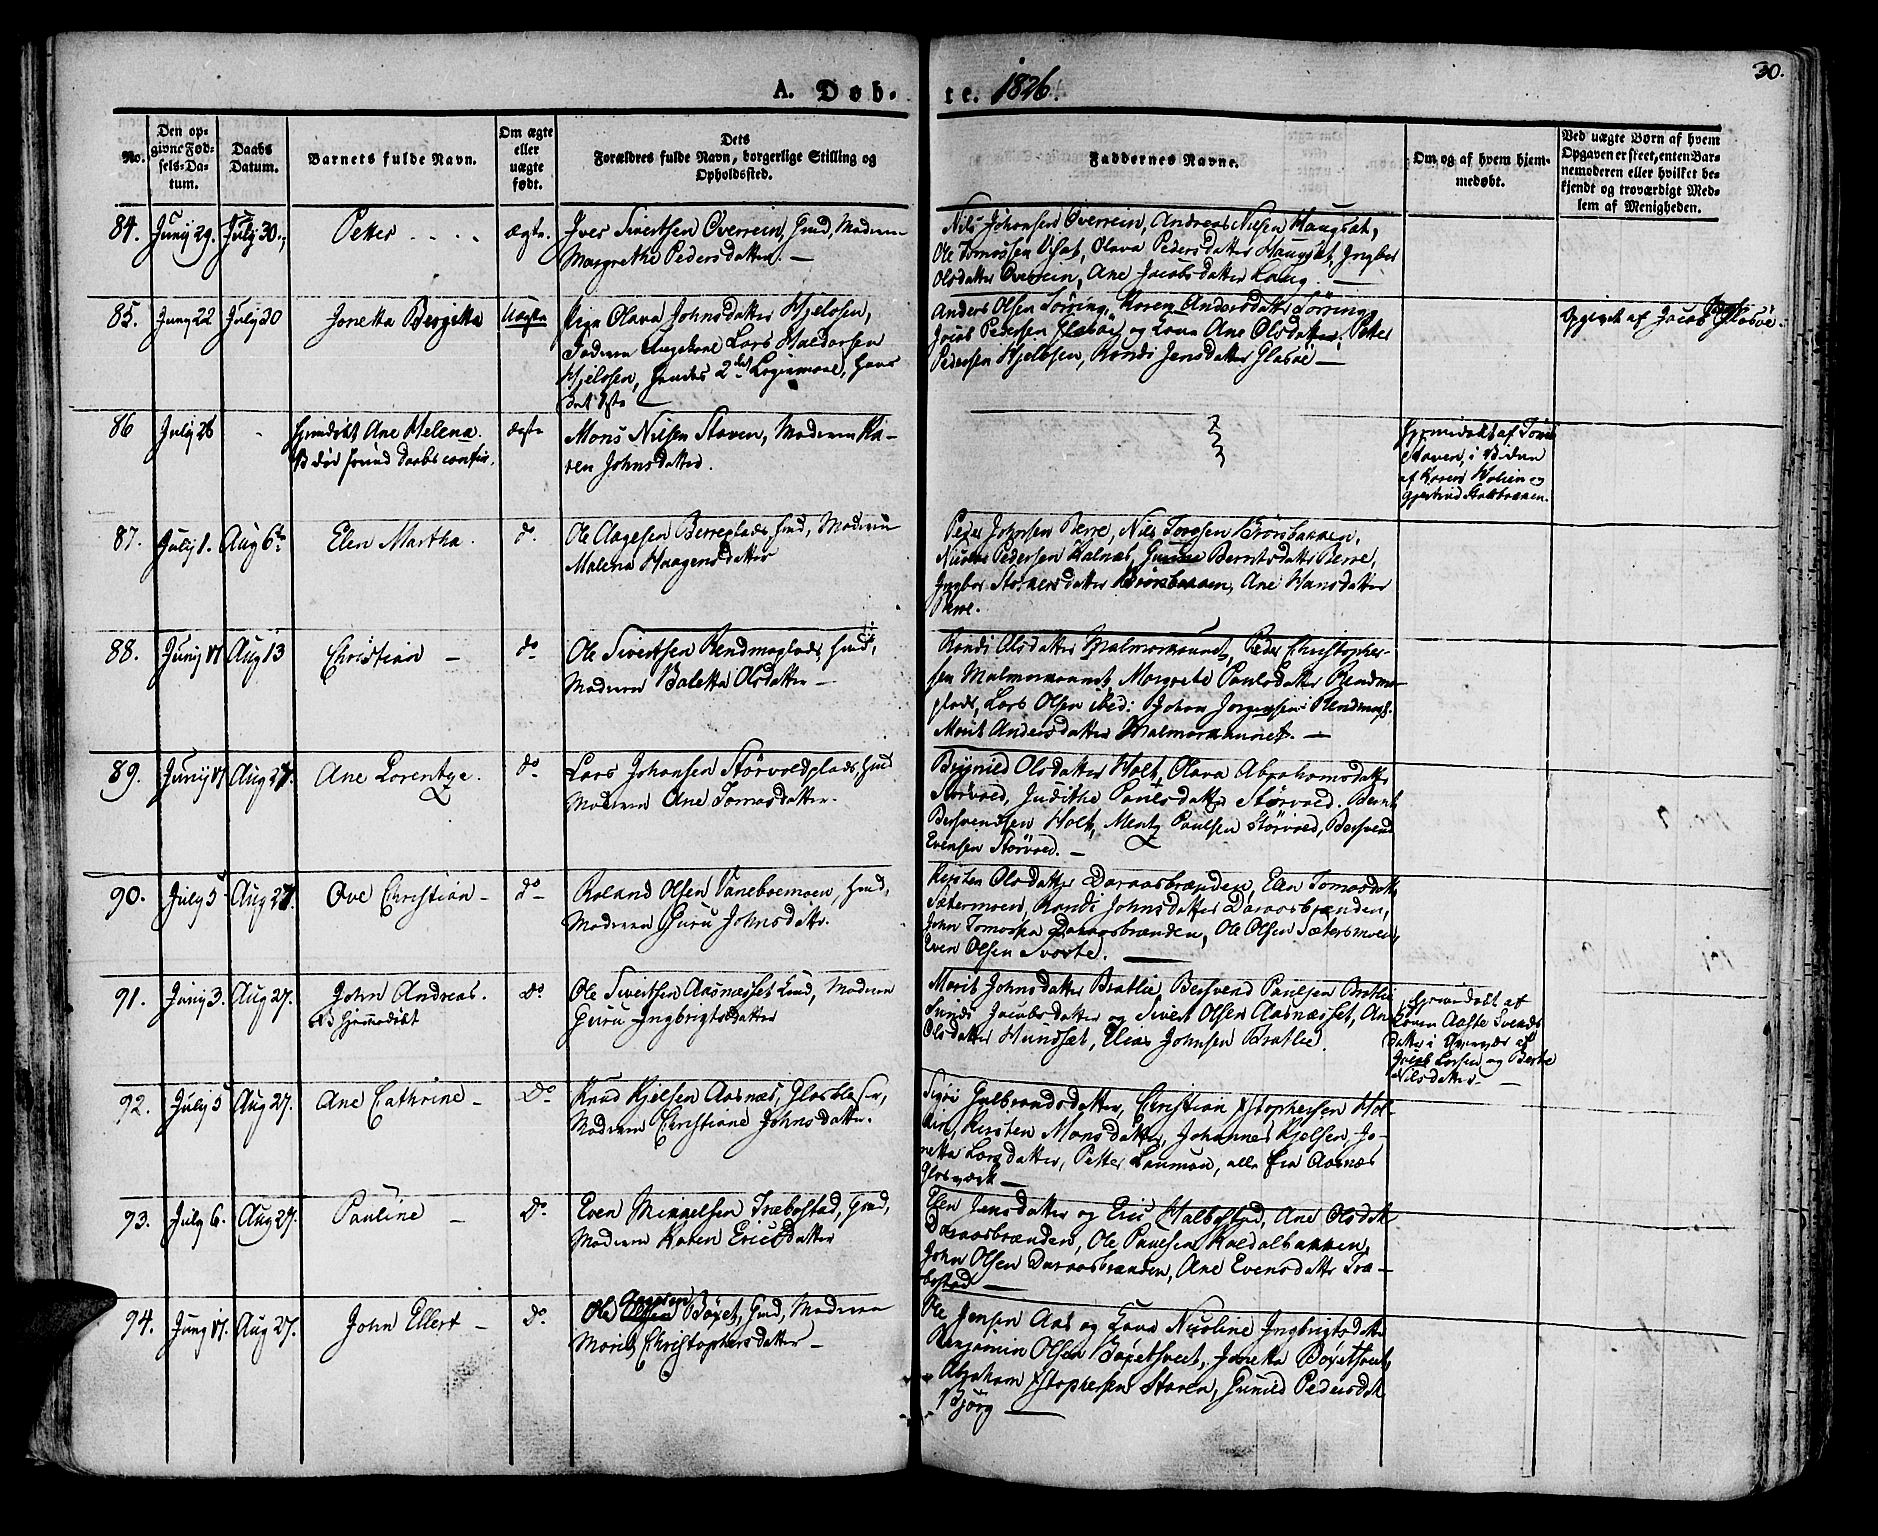 30.
A. Døb- te. 1826.
No.
Den op-
givne Fød-
sels-Da-
tum.
Daabs
Datum.
Barnets fulde Navn.
Om ægte
eller
uægte
født.
Dets
Forældres fulde Navn, borgerlige Stilling og
Opholdssted.
Faddernes Navne.
Om og af hvem hjem-
medøbt.
Ved uægte Børn af hvem
Opgaven er skeet, enten Bar-
nemoderen eller hvilket be-
kjendt og troværdigt Med-
lem af Menigheden.
84. Junij 29. July 30. Petter ægte.
Iver Sivertsen Overrein, Gmd, Moderen
Margrethe Pedersdatter. —
Nils Johansen Overrein, Andreas Nilsen Haugsæt,
Ole Tomassen, Olava Pedersdatter Haugsæt, Ingbor
Olsdatter Overrein, Ane Jacobsdatter Haug. —
85. Juny 22 July 30 Jonetta Bergitta Uægte
Pige Olava Johnsdatter Hjelosen,
Faderen Ungekarl Lars Haldorsen
Hjelosen, hendes 2det Leiermaal, hans
det første —
Anders Olsen Sørring, Karen Andersdatter Sørring
Jacob Pedersen Glasøe, og Kone Ane Olsdatter, Peter
Pedersen Hjelosen, Randi Jensdatter Glasøe —
Opgivet af Jacob Glasøe.
86 July 26 hjemdøbt Ane Helena. ægte
død førend Daabs confir.
Mons Nilsen Staven, Moderen Ka-
ren Johnsdatter.
Hjemmedøbt af
Staven, i
af Karen Holien og
Gjertrud
87. July 1. Aug 6te Elen Martha. do
Ole Aagesen Berreplads, hmd, Moderen
Malena Haagensdatter
Peder Johnsen Berre, Nils Toresen Brønbakken,
Nicolai Pedersen Halnæs, Gunnor Berntsdatter Berre,
Ingbor Størkersdatter Brønbakken, Ane Hansdatter
Berre.
88. Junij 17 Aug 13 Christian — do
Ole Sivertsen Rendmaplads, hmd,
Moderen Beletta Olsdatter —
Randi Olsdatter Malmarkaunet, Peder Christopher-
sen Malmarkaunet, Margrete Paulsdatter Rendma-
plads, Lars Olsen ibid: Johan Jørgensen Rendmapl.
Marit Andersdatter Malmarkaunet. —
89. Junij 17 Aug 27. Ane Lorentze. do
Lars Johansen Størvoldplads, hmd
Moderen Ane Tomasdatter.
Brynild Olsdatter Holt, Olava Abrahamsdatter
Størvold, Judithe Paulsdatter Størvold. Bernt
Bersvendsen Holt, Mentz Paulsen Størvold, Bersvend
Evensen Størvold. —
90. July 5 Aug 27. Ove Christian — do
Roland Olsen Vaneboemoen, hmd,
Moderen Guru Johnsdatter.
Kirsten Olsdatter Daraasbrænden, Elen Tomasdatter
Sætermoen, Randi Johnsdatter Daraasbrænden,
John Tomassen Daraasbrænden, Ole Olsen Sætersmoen,
Iver Olsen Svarte. —
91. Junij 3. Aug 27. John Andreas. Do
NB Hjemmedøbt
Ole Sivertsen Aasnæsset hmd, Moderen
Guru Ingbrigtsdatter
Marit Johnsdatter Bratlie, Bersvend Paulsen Bratlie
Jacobsdatter og Sivert Olsen Aasnæsset, Ane
Olsdatter Hundsæt, Elias Johnsen Bratlie.
Hjemmedøbt af
Konen Aaste Svends
datter i Overvær af
Jacob Larsen og Berte
Nilsdatter —
92. July 5 Aug 27. Ane Cathrine — Do
Knud Kjelsen Aasnæs, Glasblæser,
Moderen Christiane Johnsdatter.
Siri Gulbrandsdatter, Christian Xstophersen Hol-
, Kirsten Monsdatter, Johannes Kjelsen, Jo-
netta Larsdatter, Petter Lauman, alle fra Aasnæs
Glasværk —
93. July 6. Aug 27. Pauline — Do
Even Mikkelsen Træbostad, Gmd,
Moderen Karen Ericsdatter
Elen Jensdatter og Eric Halbostad, Ane Olsdtr
Daraasbrænden, Ole Paulsen Kaldalbakken,
John Olsen Daraasbrænden, Ane Evensdatter Træ-
bostad —
94. Juny 17. Aug 27. John Ellert — Do
Ole Bøxet, Gmd, Moderen
Marit Christophersdatter —
Ole Jensen Aas og Kone Nicoline Ingbrigtsdatter
Benjamin Olsen Bøxetsveet, Jonetta Bøxetsveet,
Abraham Xstophersen Staven, Gunild Pedersdtr
Bjørg —